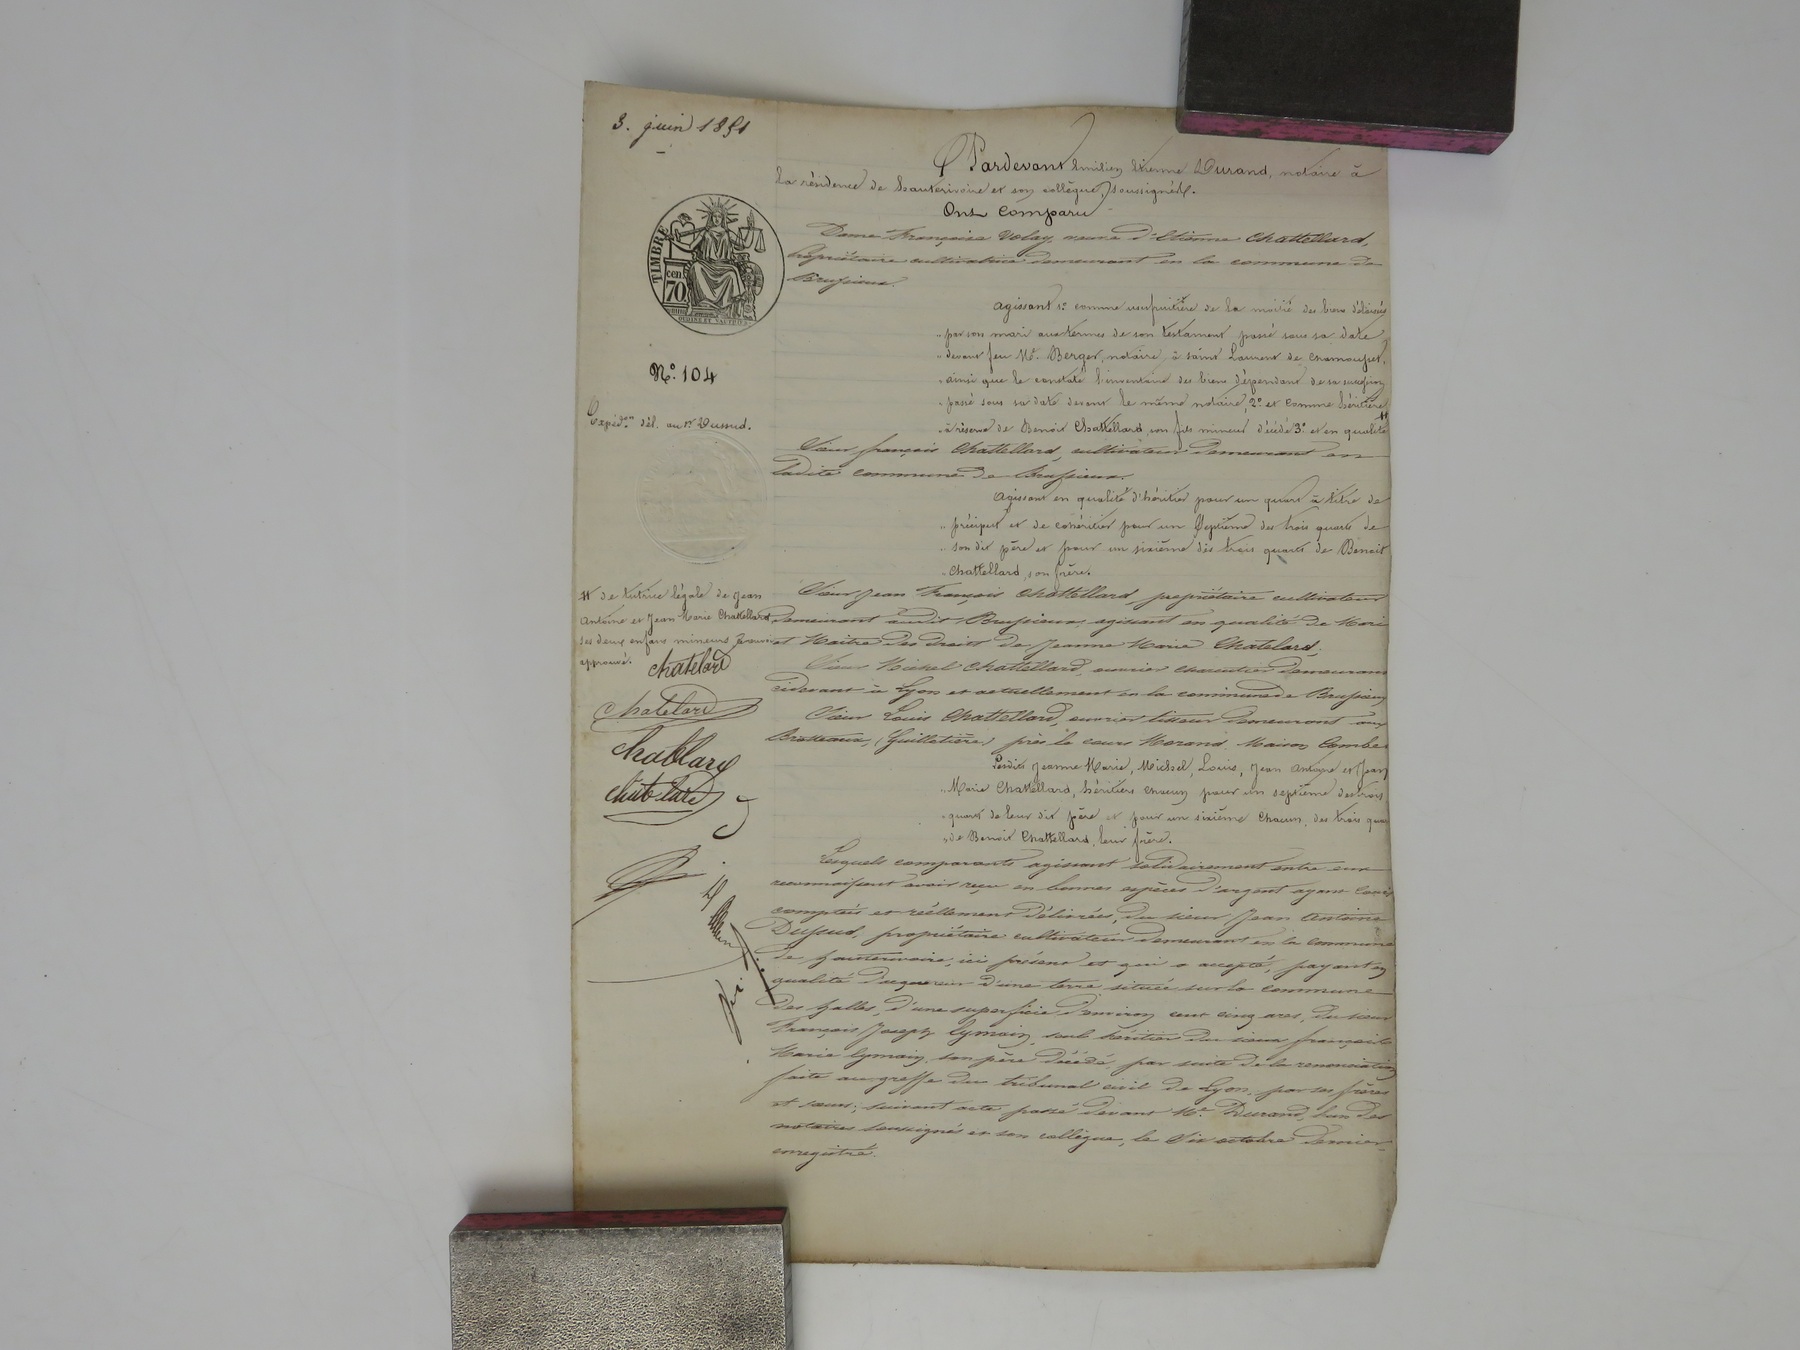 3. juin 1851
Pardevant Emilien Etienne Durand, notaire à
la résidence de hauterivoire et son collègue, soussignés.
Ont Comparu
Dame Françoise Volay, veuve d'Etienne Chattellard,
Propriétaire cultivatrice demeurant en la commune de
Brussieux.
TIMBRE
cent
70
N°. 104
Expédon dél. au sr Dussud.
Agissant 1° comme usufruitière de la moitié des biens délaissés
par son mari aux termes de son testament passé sous sa date
devant feu Me. Berger, notaire, à saint Laurent de Chamousset,
ainsi que le constate l'inventaire des biens dépendant de sa succession
passé sous sa date devant le même notaire, 2° et comme héritière
à réserve de Benoit Chattellard, son fils mineur décédé 3° et en qualité #
Sieur françois Chattellard, cultivateur demeurant en
ladite commune de Brussieux.
Agissant en qualité d'héritier pour un quart à titre de
préciput et de cohéritier pour un septième des trois quarts de
son dit père et pour un sixième des trois quarts de Benoit
Chattellard, son frère.
# de tutrice légale de Jean
Antoine et Jean Marie Chattellard
ses deux enfans mineurs
approuvé.
Chatelard
Chatelard
Chatelard
Sieur Jean François Chattellard, propriétaire cultivateur
demeurant audit Brussieux, agissant en qualité de Mari
et Maître des droits de Jeanne Marie Chatelard;
Sieur Michel Chattellard, ouvrier charcutier demeurant
cidevant à Lyon et actuellement en la commune de Brussieux
Sieur Louis Chattellard, ouvrier tisseur demeurant aux
Brotteaux, (Guillotière) près le cours Morand, Maison Combe
Lesdits Jeanne Marie, Michel, Louis, Jean Antoine et Jean
Marie Chattellard, héritiers chacun pour un septième des trois
quart de leur dit père et pour un sixième chacun, des trois quart
de Benoit Chattellard, leur frère.
Lesquels comparants agissant solidairement entre eux
reconnaissent avoir reçu en bonnes espèces d'argent ayant cours
comptées et réellement délivrées, du sieur Jean Antoine
Dussud, propriétaire cultivateur demeurant en la commune
de hauterivoire, ici présent et qui a accepté, payant en
qualité d'acquéreur d'une terre située sur la commune
des halles, d'une superficie d'environ cent cinq ares, du sieur
François Joseph Eymain, seul héritier du sieur françois
Marie Eymain, son père décédé, par suite de la renonciation
faite au greffe du tribunal civil de Lyon, par ses frères
et sœurs; suivant acte passé devant Me. Durand, l'un des
notaires soussignés et son collègue, le Six octobre dernier
enregistré.